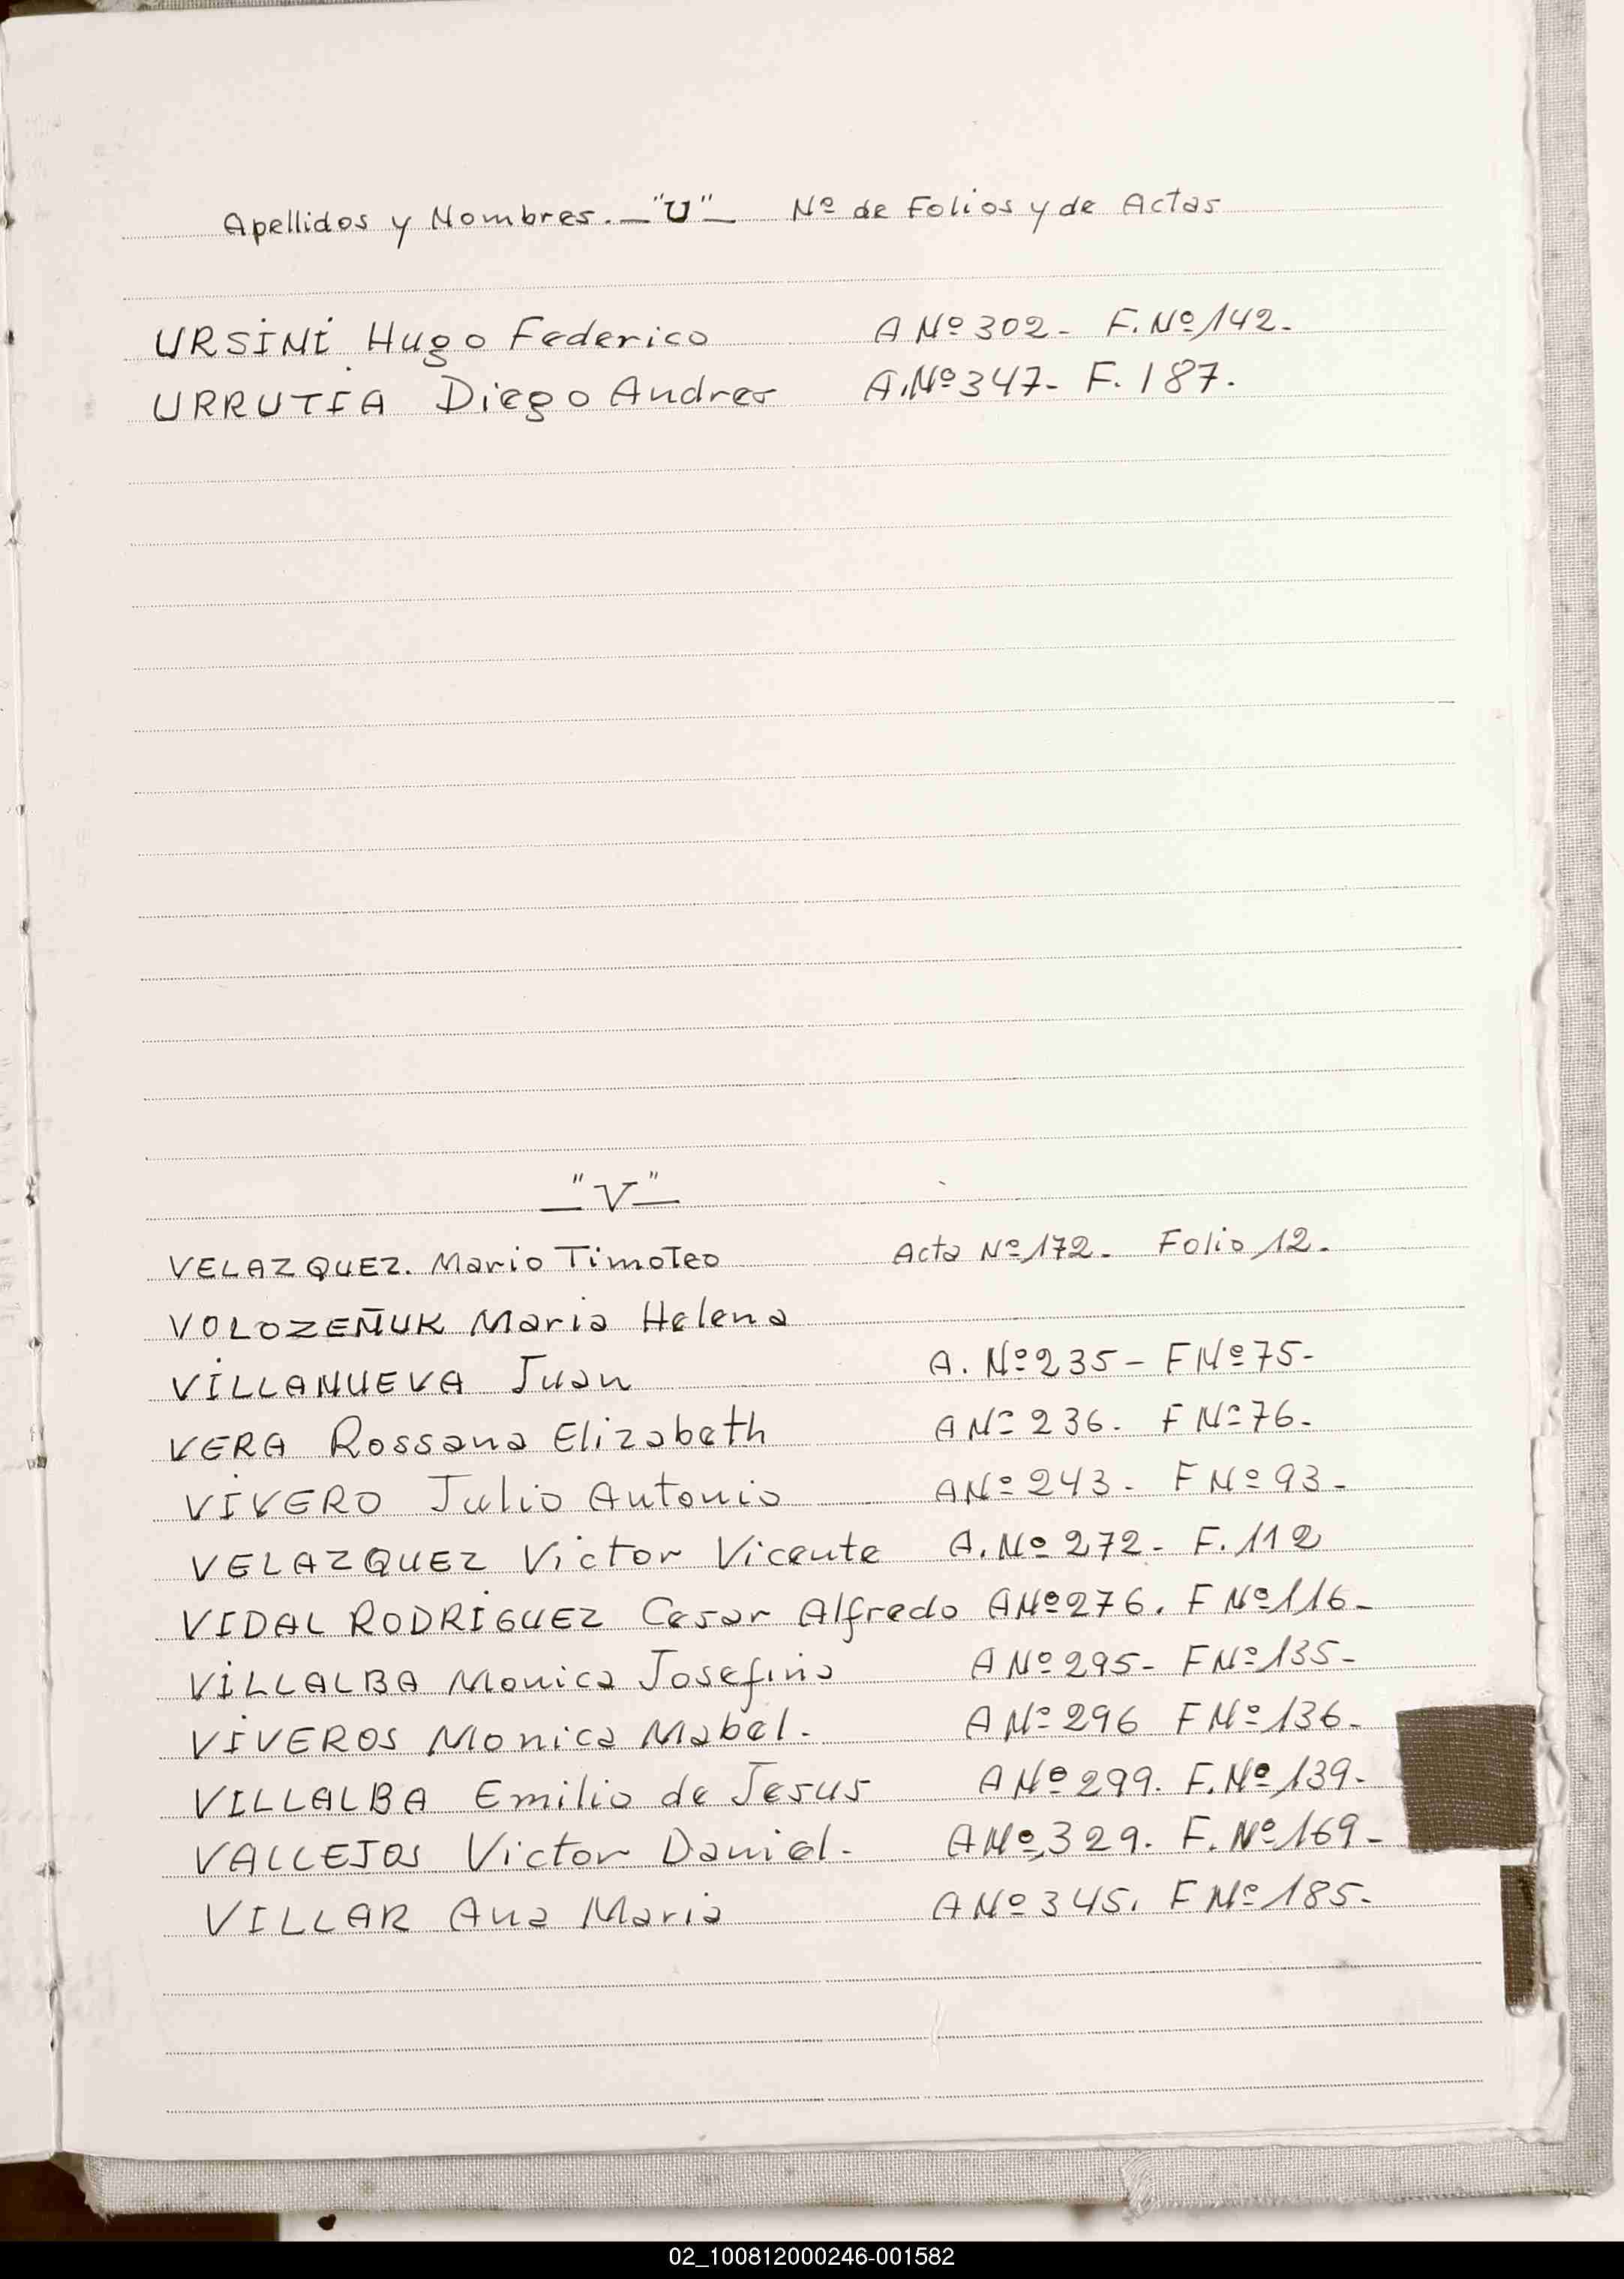 Apellidos y Nombres. - "U" - Nº de Folios y de Actas
URSINI Hugo Federico A Nº 302 - F. Nº 142 -
URRUTIA Diego Andres A. Nº 347 - F. 187.
- "V" -
VELAZQUEZ. Mario Timoteo Acta Nº 172 - Folio 12.
VOLOZEÑUK Maria Helena
VILLANUEVA Juan A. Nº 235 - F Nº 75 -
VERA Rossana Elizabeth A Nº 236. F Nº 76 -
VIVERO Julio Antonio A Nº 243 - F Nº 93 -
VELAZQUEZ Victor Vicente A. Nº 272 - F. 112
VIDAL RODRIGUEZ Cesar Alfredo A Nº 276. F Nº 116 -
VILLALBA Monica Josefina A Nº 295 - F Nº 135 -
VIVEROS Monica Mabel. A Nº 296 F Nº 136 -
VILLALBA Emilio de Jesus A Nº 299. F. Nº 139 -
VALLEJOS Victor Daniel. A Nº 329. F. Nº 169 -
VILLAR Ana Maria A Nº 345. F Nº 185 -
02_100812000246-001582